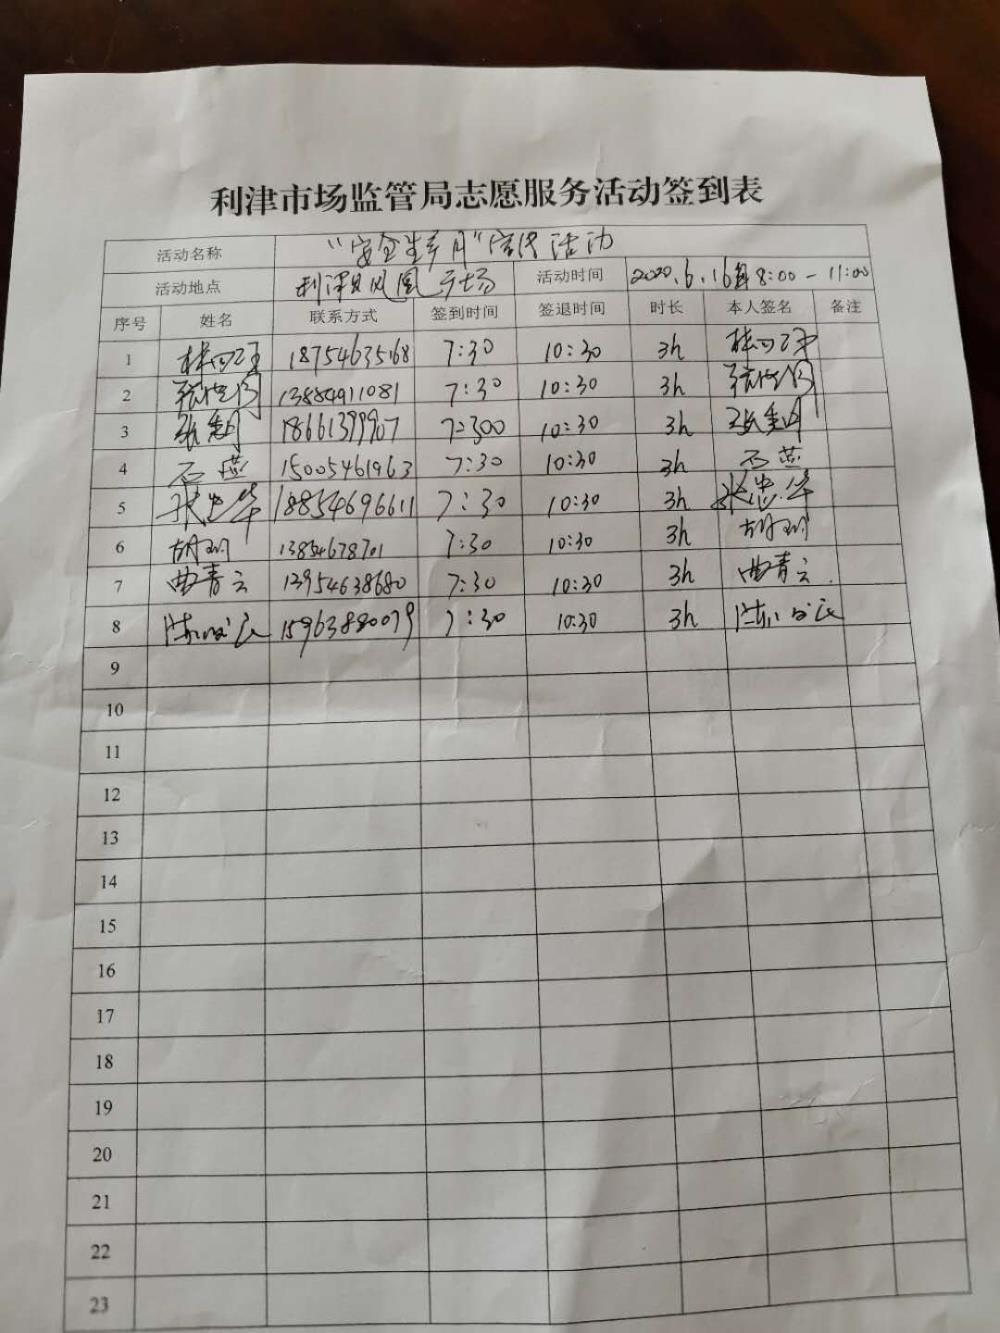 利津市场监管局志愿服务活动签到表
活动名称 "安全生产月"宣传活动
活动地点 利津县凤凰广场 活动时间 2020.6.16 8:00-11:00
序号 姓名 联系方式 签到时间 签退时间 时长 本人签名 备注
1 18754635168 7:30 10:30 3h
2 13884911081 7:30 10:30 3h
3 18661399907 7:300 10:30 3h
4 石蓝 15005461963 7:30 10:30 3h 石蓝
5 张忠华 18854696611 7:30 10:30 3h 张忠华
6 胡玥 13854678701 7:30 10:30 3h 胡玥
7 曲青云 13954638680 7:30 10:30 3h 曲青云
8 15963880079 7:30 10:30 3h
9
10
11
12
13
14
15
16
17
18
19
20
21
22
23